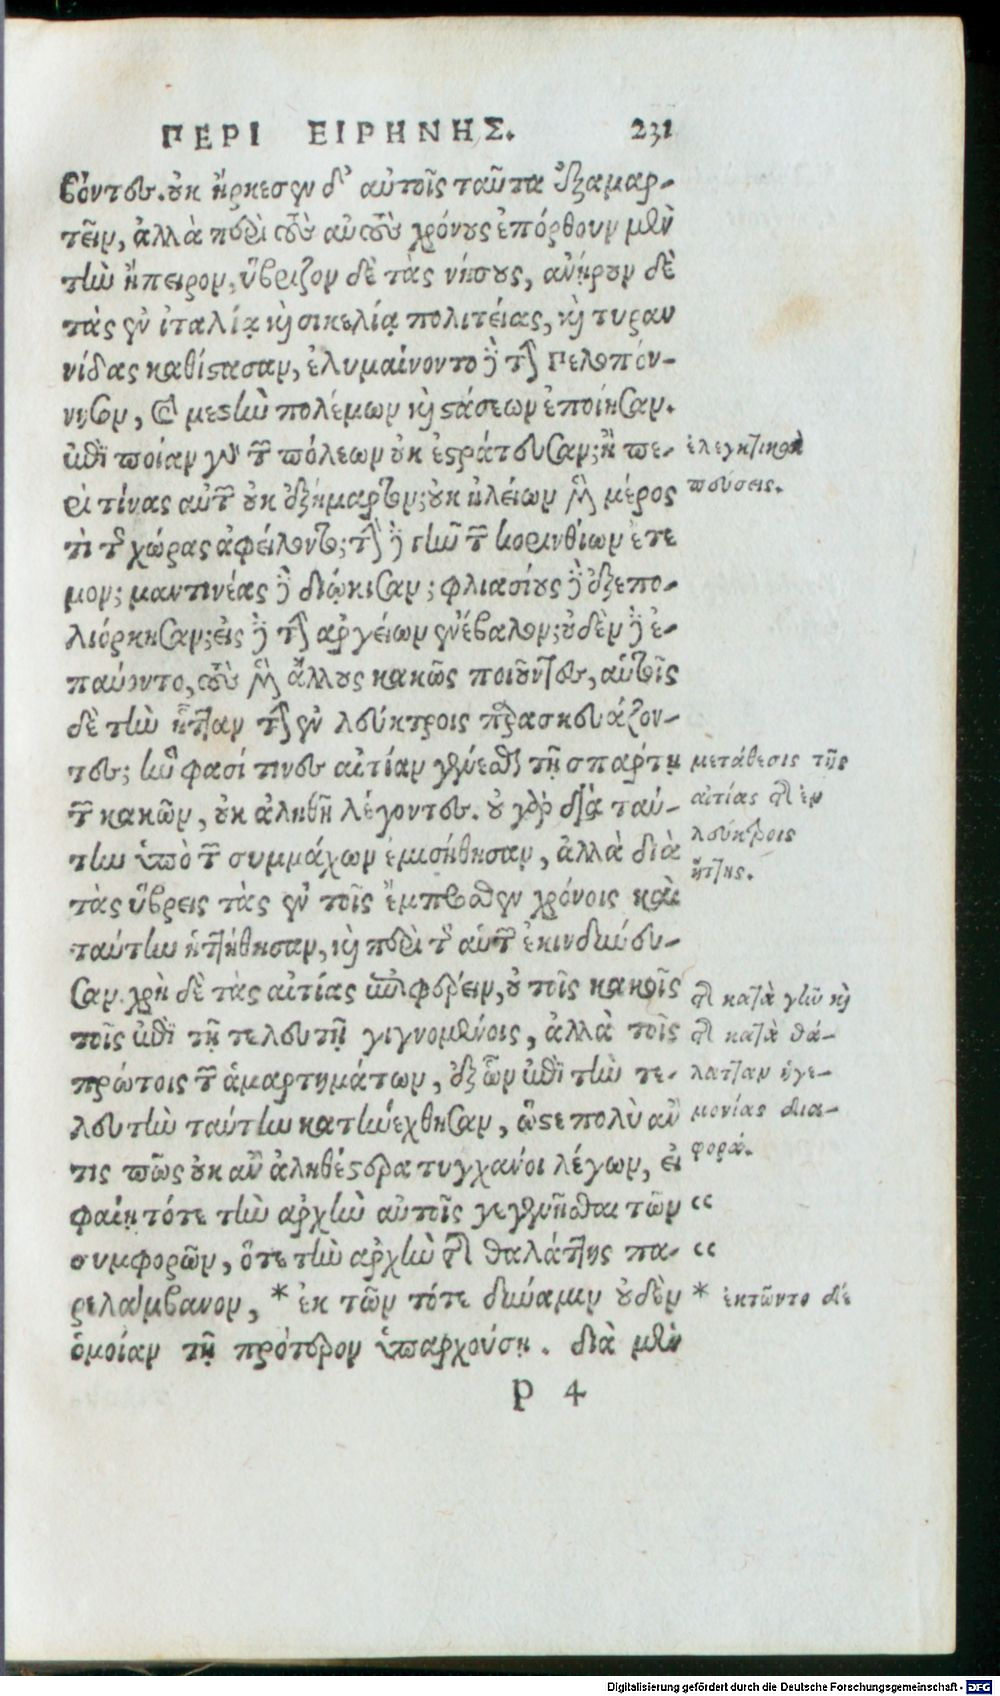 ΠΕΡΙ ΕΙΡΗΝΗΣ. 231
βόντες. οὐκ ἤρκεσεν δ' αὐτοῖς ταῦτα ἐξαμαρ-
τεῖν, ἀλλὰ περὶ τοὺς αὐτοὺς χρόνους ἐπόρθουν μὲν
τὴν ἤπειρον, ὕβριζον δὲ τὰς νήσους, ἀνῄρουν δὲ
τὰς ἐν ἰταλίᾳ καὶ σικελίᾳ πολιτείας, καὶ τυραν
νίδας καθίστασαν, ἐλυμαίνοντο δὲ τὴν Πελοπόν-
νησον, καὶ μεστὴν πολέμων καὶ στάσεων ἐποίησαν.
ἐπὶ ποίαν γὰρ τῶν πόλεων οὐκ ἐστράτευσαν; ἢ πε-
ρὶ τίνας αὐτῶν οὐκ ἐξήμαρτον; οὐκ ἠλείων μὲν μέρος
τὶ τῆς χώρας ἀφείλοντο; τὴν δὲ γῆν τῶν κορινθίων ἔτε
μον; μαντινέας δὲ διῴκισαν; φλιασίους δὲ ἐξεπο-
λιόρκησαν; εἰς δὲ τὴν ἀργείων ἐνέβαλον; οὐδὲν δὲ ἐ-
παύοντο, τοὺς μὲν ἄλλους κακῶς ποιοῦντες, αὑτοῖς
δὲ τὴν ἧτταν τὴν ἐν λεύκτροις παρασκευάζον-
τες; ἥν φασί τινες αἰτίαν γενέσθαι τῇ σπάρτῃ
τῶν κακῶν, οὐκ ἀληθῆ λέγοντες. οὐ γὰρ διὰ ταύ-
την ὑπὸ τῶν συμμάχων ἐμισήθησαν, ἀλλὰ διὰ
τὰς ὕβρεις τὰς ἐν τοῖς ἔμπροσθεν χρόνοις καὶ
ταύτην ἡττήθησαν, καὶ περὶ τῆς αὑτῶν ἐκινδύνευ-
σαν. χρὴ δὲ τὰς αἰτίας ἐπιφέρειν, οὐ τοῖς κακοῖς
τοῖς ἐπὶ τῇ τελευτῇ γιγνομένοις, ἀλλὰ τοῖς
πρώτοις τῶν ἁμαρτημάτων, ἐξ ὧν ἐπὶ τὴν τε-
λευτὴν ταύτην κατηνέχθησαν, ὥστε πολὺ ἄν
τις πῶς οὐκ ἂν ἀληθέστερα τυγχάνοι λέγων, εἰ
φαίη τότε τὴν ἀρχὴν αὐτοῖς γεγενῆσθαι τῶν
συμφορῶν, ὅτε τὴν ἀρχὴν τῆς θαλάττης πα-
ρελάμβανον, * ἐκ τῶν τότε δύναμιν οὐδὲν
ὁμοίαν τῇ πρότερον ὑπαρχούσῃ. διὰ μὲν
p 4
ἐλεγκτικαὶ
πεύσεις.
μετάθεσις τῆς
αἰτίας τῆς ἐν
λεύκτροις
ἥττης.
τῆς κατὰ γῆν καὶ
τῆς κατὰ θά-
λατταν ἡγε-
μονίας δια-
φορά.
“
“
* ἐκτῶντο δὲ
Digitalisierung gefördert durch die Deutsche Forschungsgemeinschaft - DFG